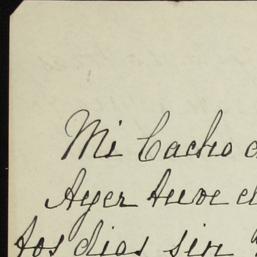 Mi Cacho
Ayer tuve
tos dias sin